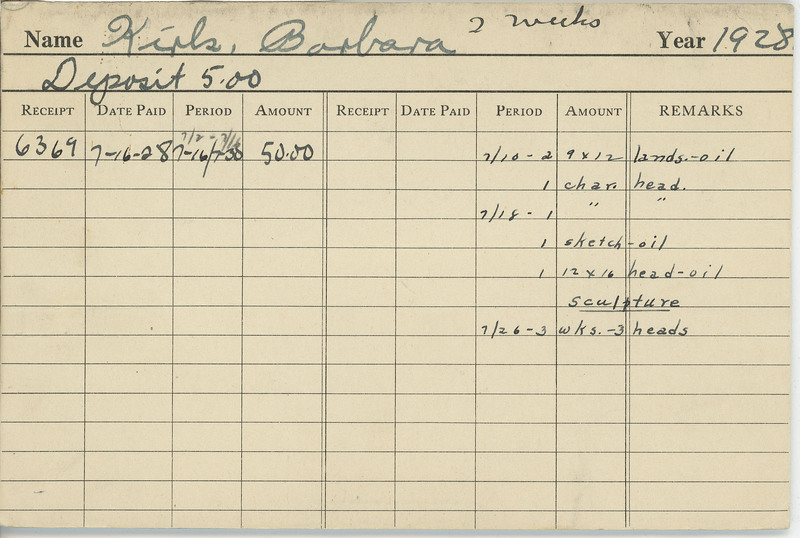 2 weeks
Name Kirk, Barbara Year 1928
Deposit 5.00
RECEIPT DATE PAID PERIOD AMOUNT RECEIPT DATE PAID PERIOD AMOUNT REMARKS
6369 7-16-28 50.00 7/10 - 2 9 x 12 lands.-oil
1 char. head.
7/18 - 1 " "
1 sketch-oil
1 12 x 16 head-oil
sculpture
7/26 - 3 wks. - 3 heads